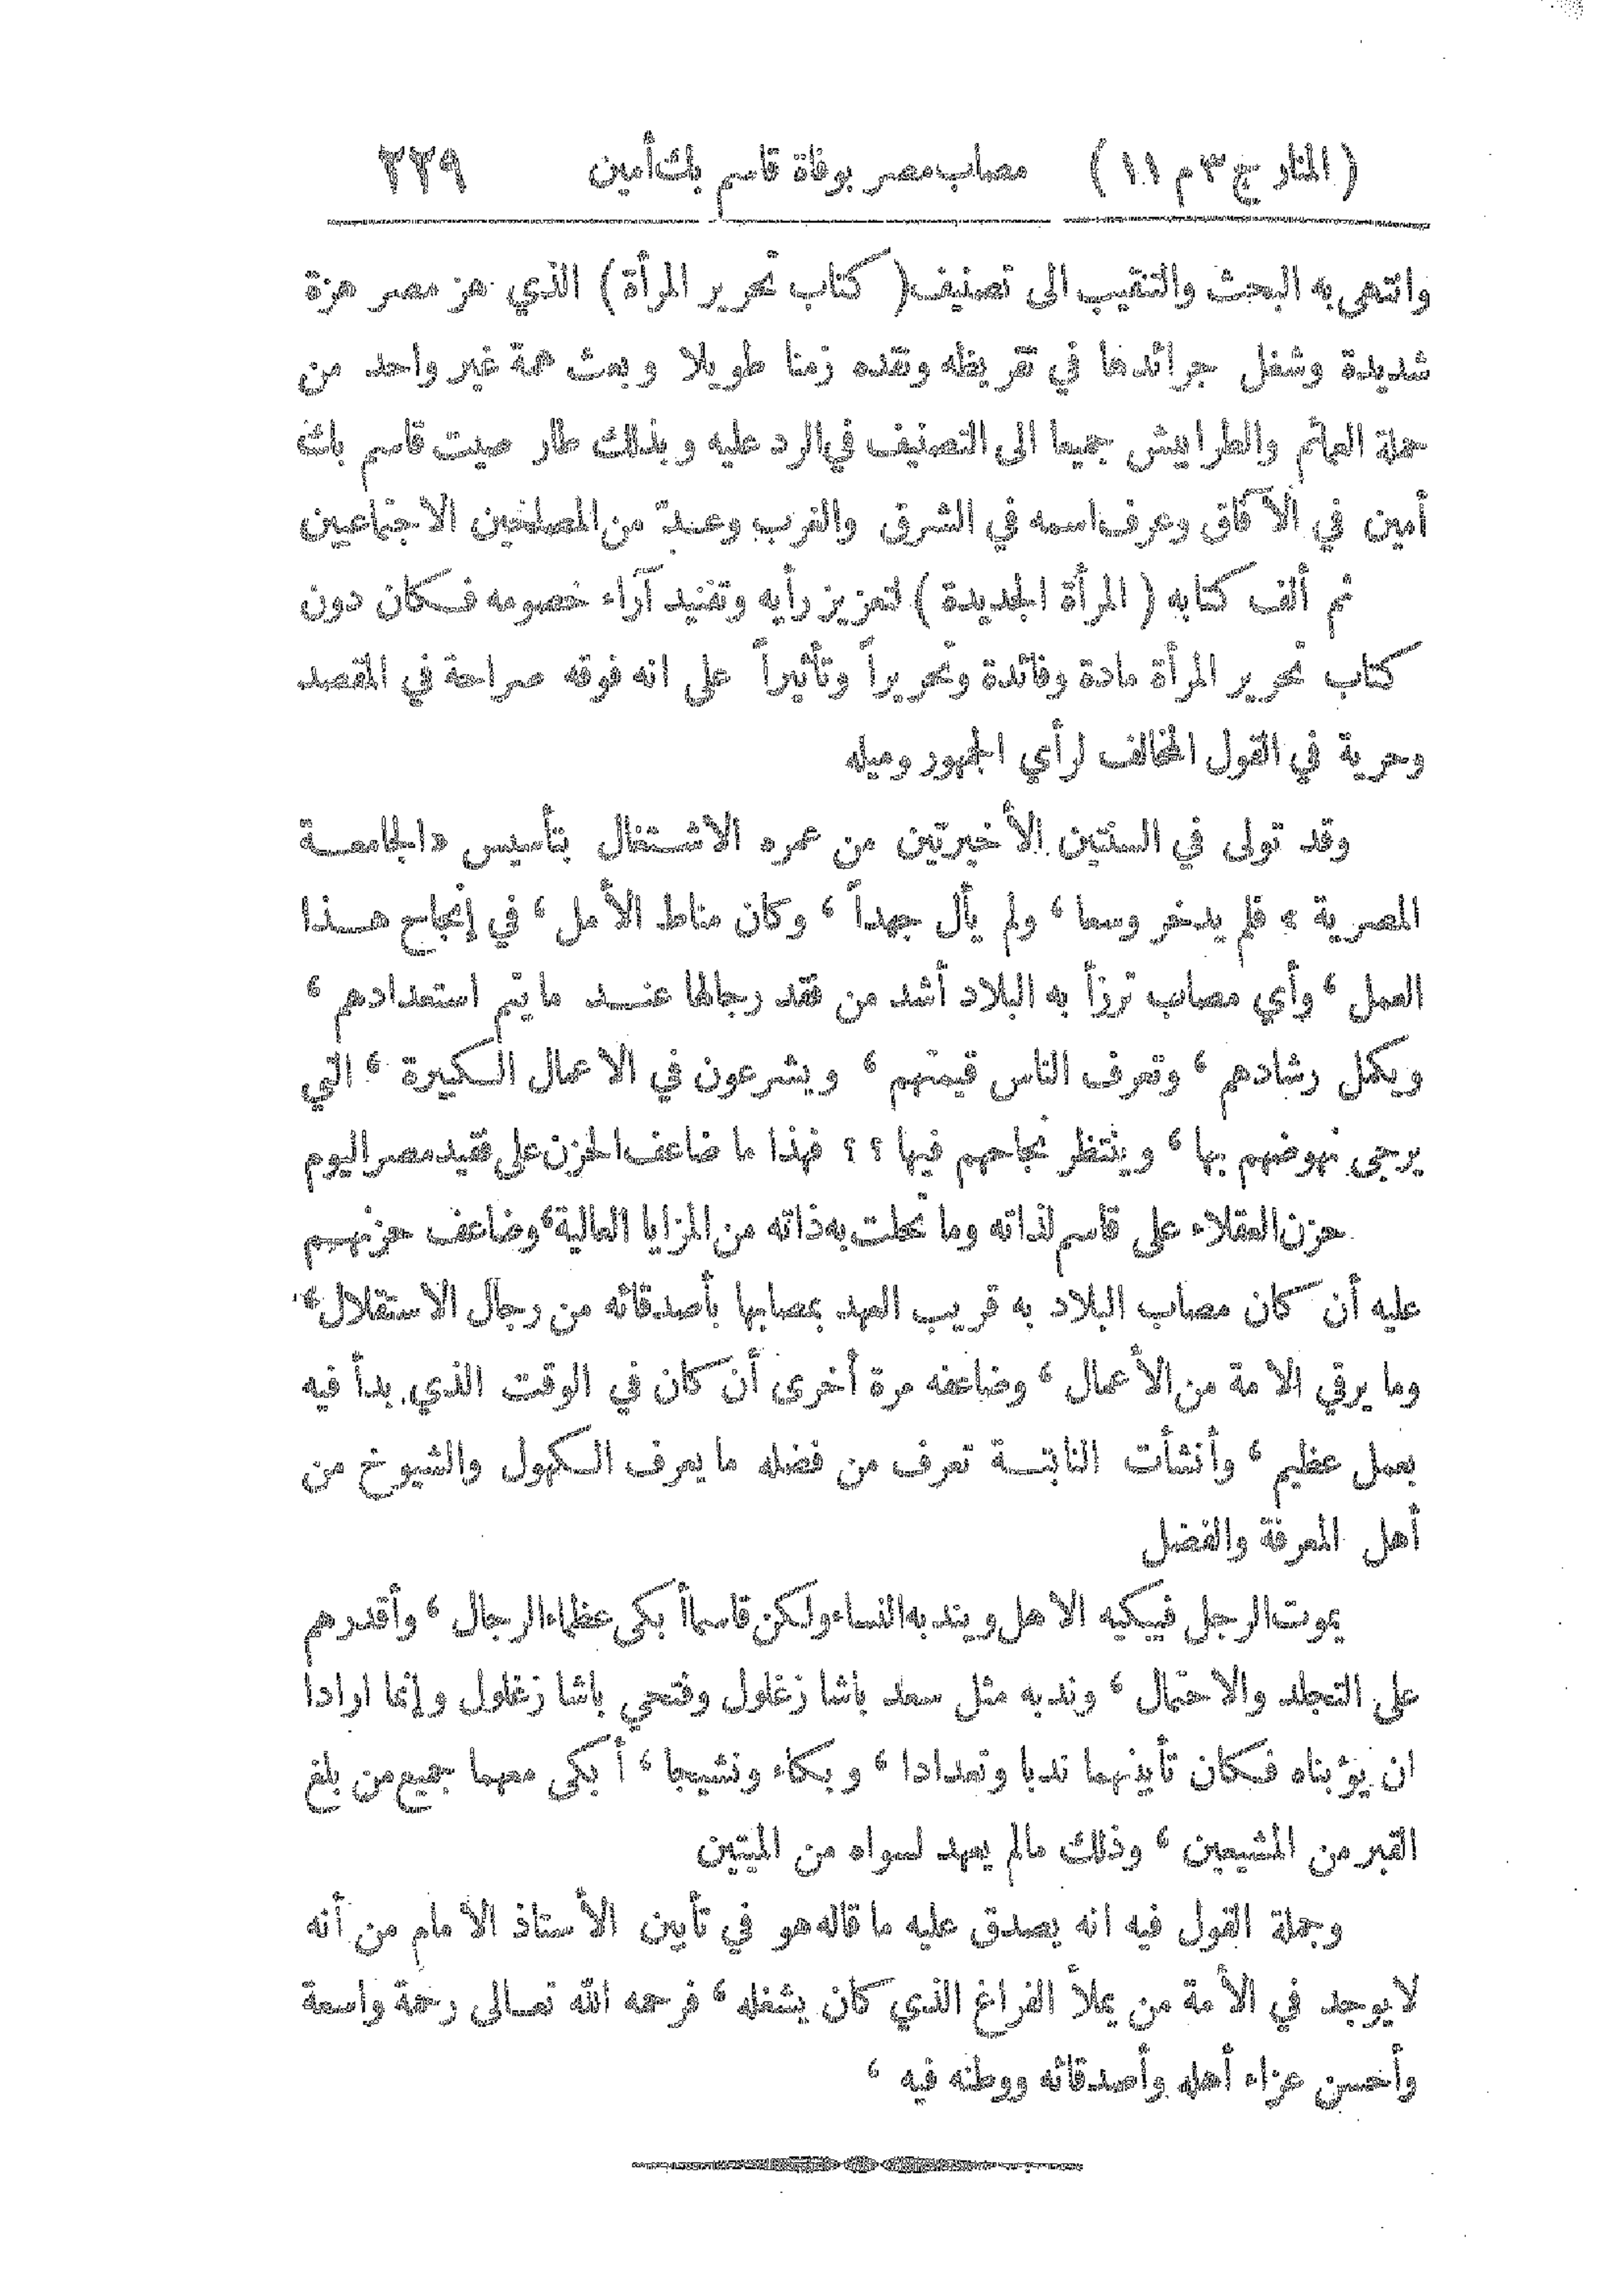 (المنار ج ٣ م ١١) مصاب مصر بوفاة قاسم بك أمين ٢٢٩
وانتهى به البحث والتنقيب الى تصنيف ( كتاب تحرير المرأة ) الذي هز مصر هزة
شديدة وشغل جرائدها في تقريظه ونقده زمنا طويلا وبعث همة غير واحد من
حملة العمائم والطرابيش جميعا الى التصنيف في الرد عليه وبذلك طار صيت قاسم بك
أمين في الآفاق وعرف اسمه في الشرق والغرب وعد من المصلحين الاجتماعيين
ثم ألف كتابه ( المرأة الجديدة ) لتعزيز رأيه وتفنيد آراء خصومه فكان دون
كتاب تحرير المرأة مادة وفائدة وتحريراً وتأثيراً على انه فوقه صراحة في المقصد
وحرية في القول المخالف لرأي الجمهور وميله
وقد تولى في السنتين الأخيرتين من عمره الاشتغال بتأسيس «الجامعة
المصرية » فلم يدخر وسعا ، ولم يأل جهداً ، وكان مناط الأمل ، في إنجاح هذا
العمل ، وأي مصاب ترزأ به البلاد أشد من فقد رجالها عند ما يتم استعدادهم ،
ويكمل رشادهم ، وتعرف الناس قيمتهم ، ويشرعون في الاعمال الكبيرة ، التي
يرجى نهوضهم بها ، وينتظر نجاحهم فيها ؟ ؟ فهذا ما ضاعف الحزن على فقيد مصر اليوم
حزن العقلاء على قاسم لذاته وما تحلت به ذاته من المزايا العالية ، وضاعف حزنهم
عليه أن كان مصاب البلاد به قريب العهد بمصابها بأصدقائه من رجال الاستقلال ،
وما يرقي الامة من الأعمال ، وضاعفه مرة أخرى أن كان في الوقت الذي بدأ فيه
بعمل عظيم ، وأنشأت النابتة تعرف من فضله ما يعرف الكهول والشيوخ من
أهل المعرفة والفضل
يموت الرجل فيبكيه الاهل ويندبه النساء ولكن قاسماً أبكى عظماء الرجال ، وأقدرهم
على التجلد والاحتمال ، وندبه مثل سعد باشا زغلول وفتحي باشا زغلول وإنما ارادا
ان يؤبناه فكان تأبينهما ندبا وتعدادا ، وبكاء ونشيجا ، أبكى معهما جميع من بلغ
القبر من المشيعين ، وذلك مالم يعهد لسواه من الميتين
وجملة القول فيه انه يصدق عليه ما قاله هو في تأبين الأستاذ الامام من أنه
لا يوجد في الأمة من يملأ الفراغ الذي كان يشغله ، فرحمه الله تعالى رحمة واسعة
وأحسن عزاء أهله وأصدقائه ووطنه فيه ،